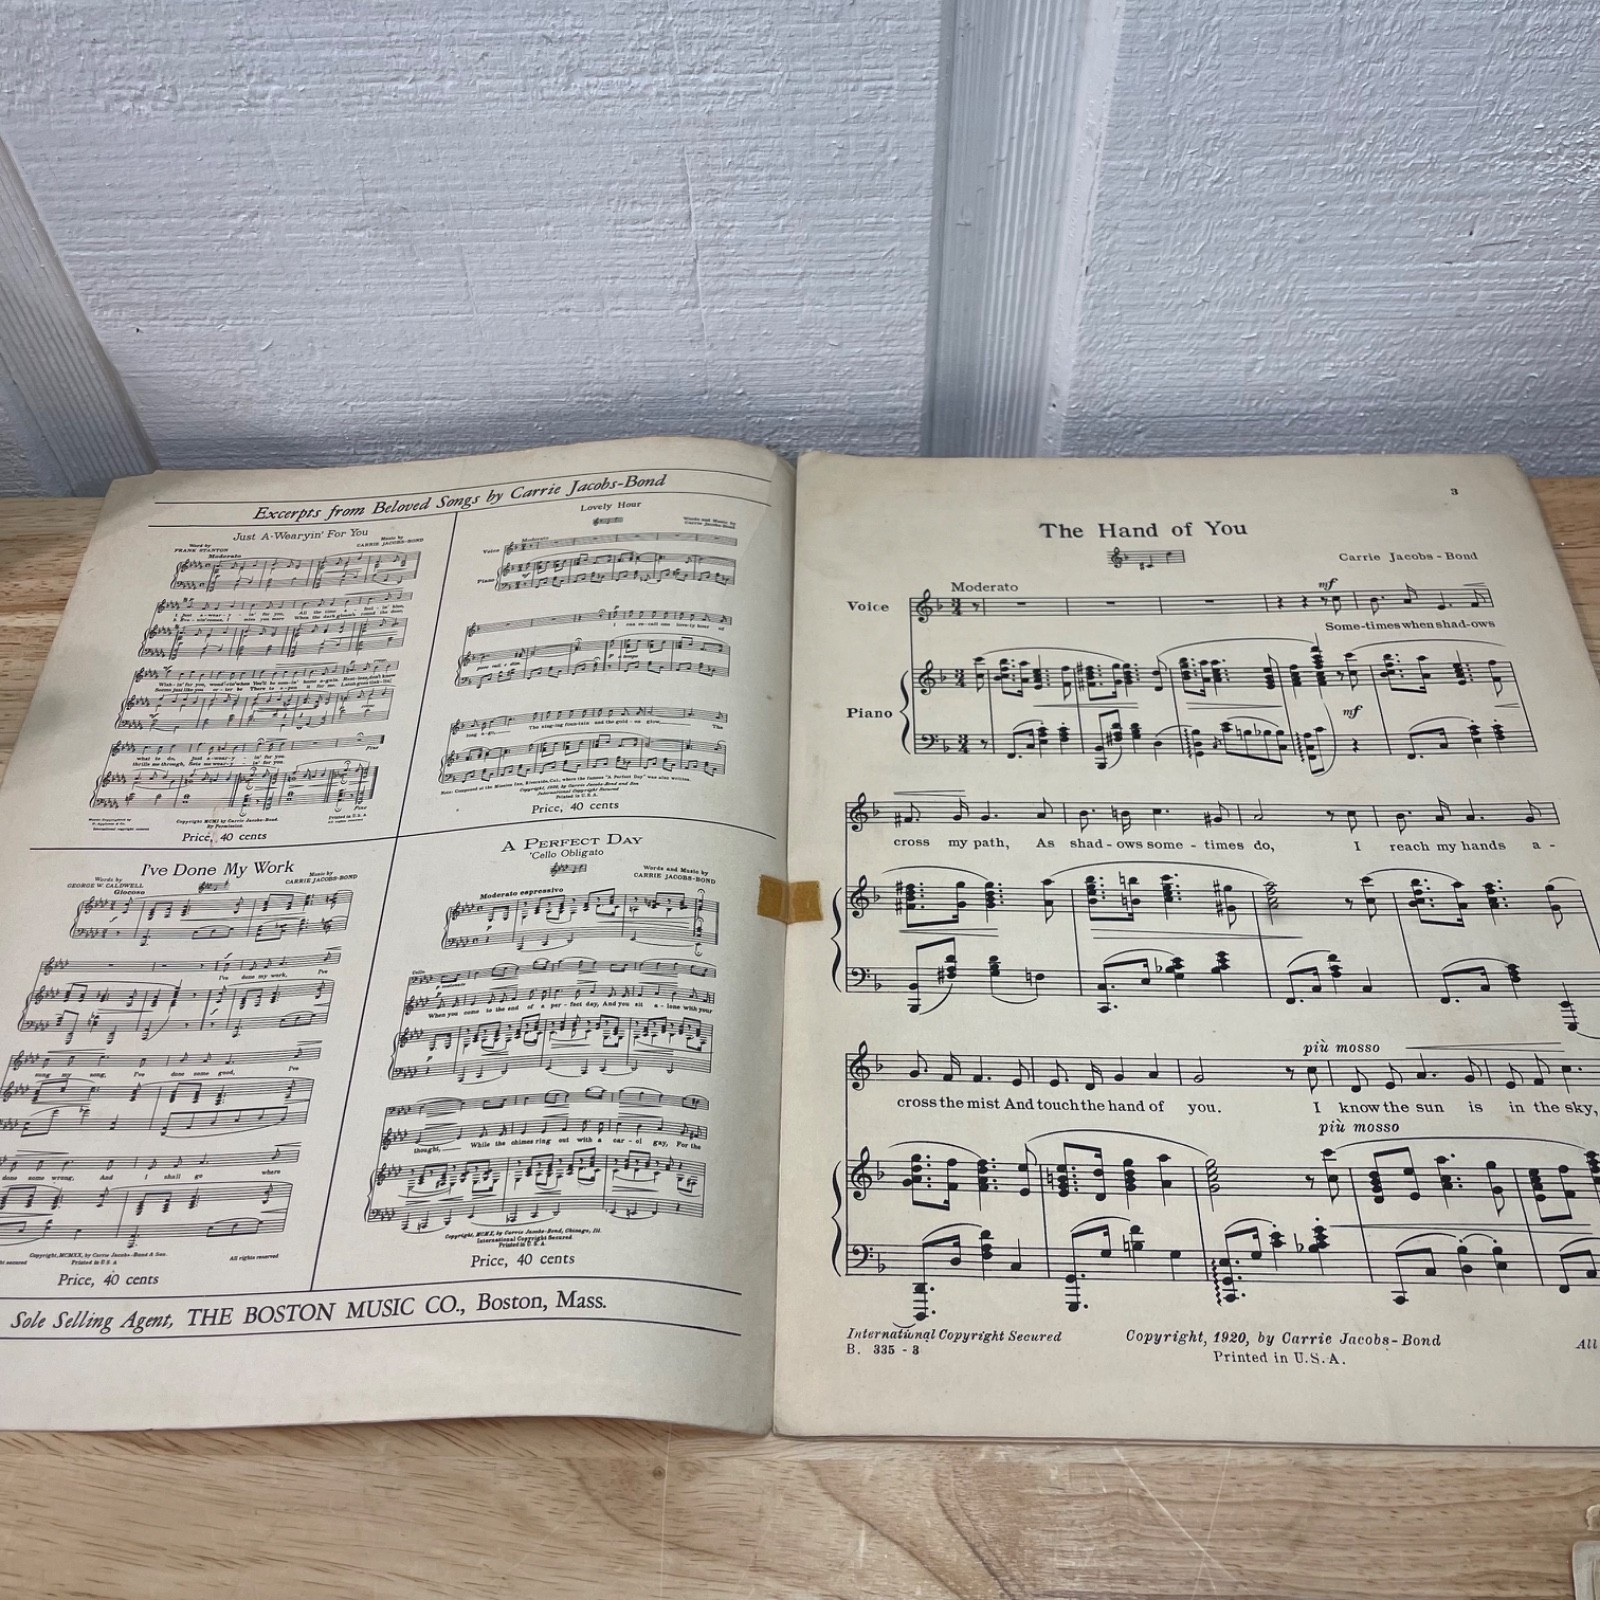 Excerpts from Beloved Songs by Carrie Jacobs-Bond
Just A-Wearyin' For You
Word by
FRANK STANTON
Music by
CARRIE JACOBS-BOND
Moderato
what is do, Just a-wear-y - in' for you
Fine
Copyright MCMI by Carrie Jacobs-Bond
By Permission
Printed in U.S.A
All rights reserved
Price, 40 cents
Lovely Hour
Words and Music by
Carrie Jacobs-Bond
Moderato
Voice
Piano
I can re-call one love-ly hour of
long a-go, The sing-ing foun-tain and the gold-en glow, The
Note: Composed at the Mission Inn, Riverside, Cal., where the famous "A Perfect Day" was also written.
Copyright, 1936, by Carrie Jacobs-Bond and Son
International Copyright Secured
Printed in U.S.A.
Price, 40 cents
I've Done My Work
Words by
GEORGE W. CALDWELL
Music by
CARRIE JACOBS-BOND
Giocoso
I've done my work, I've
sung my song, I've done some good, I've
done some wrong, And I shall go where
Copyright, MCMXX, by Carrie Jacobs-Bond & Son
Printed in U.S.A
All rights reserved
Price, 40 cents
A PERFECT DAY
'Cello Obligato
Words and Music by
CARRIE JACOBS-BOND
Moderato espressivo
Cello
When you come to the end of a per-fect day, And you sit a-lone with your
thought, While the chimes ring out with a car-ol gay, For the
Copyright, MCMX, by Carrie Jacobs-Bond, Chicago, Ill.
International Copyright Secured
Printed in U.S.A.
Price, 40 cents
Sole Selling Agent, THE BOSTON MUSIC CO., Boston, Mass.
3
The Hand of You
Carrie Jacobs-Bond
Moderato
mf
Voice
Some-times when shad-ows
Piano
mf
cross my path, As shad-ows some-times do, I reach my hands a-
più mosso
cross the mist And touch the hand of you. I know the sun is in the sky,
più mosso
International Copyright Secured
Copyright, 1920, by Carrie Jacobs-Bond
All
B. 335 - 3
Printed in U.S.A.